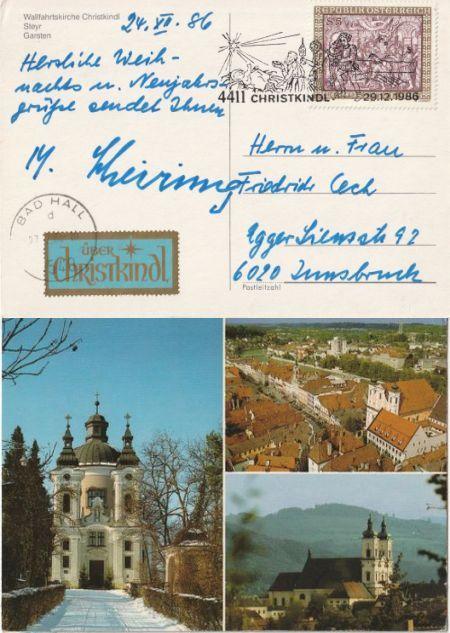 Wallfahrtskirche Christkindl
Steyr
Garsten
24. XII. 86
Herzliche Weih-
nachts u. Neujahrs-
grüße sendet Ihnen
M.
REPUBLIK ÖSTERREICH
S 5
4411 CHRISTKINDL
29.12.1986
Herrn u. Frau
Friedrich Cech
Egger Lienzstr 92
6020 Innsbruck
Postleitzahl
BAD HALL
d
ÜBER
Christkindl